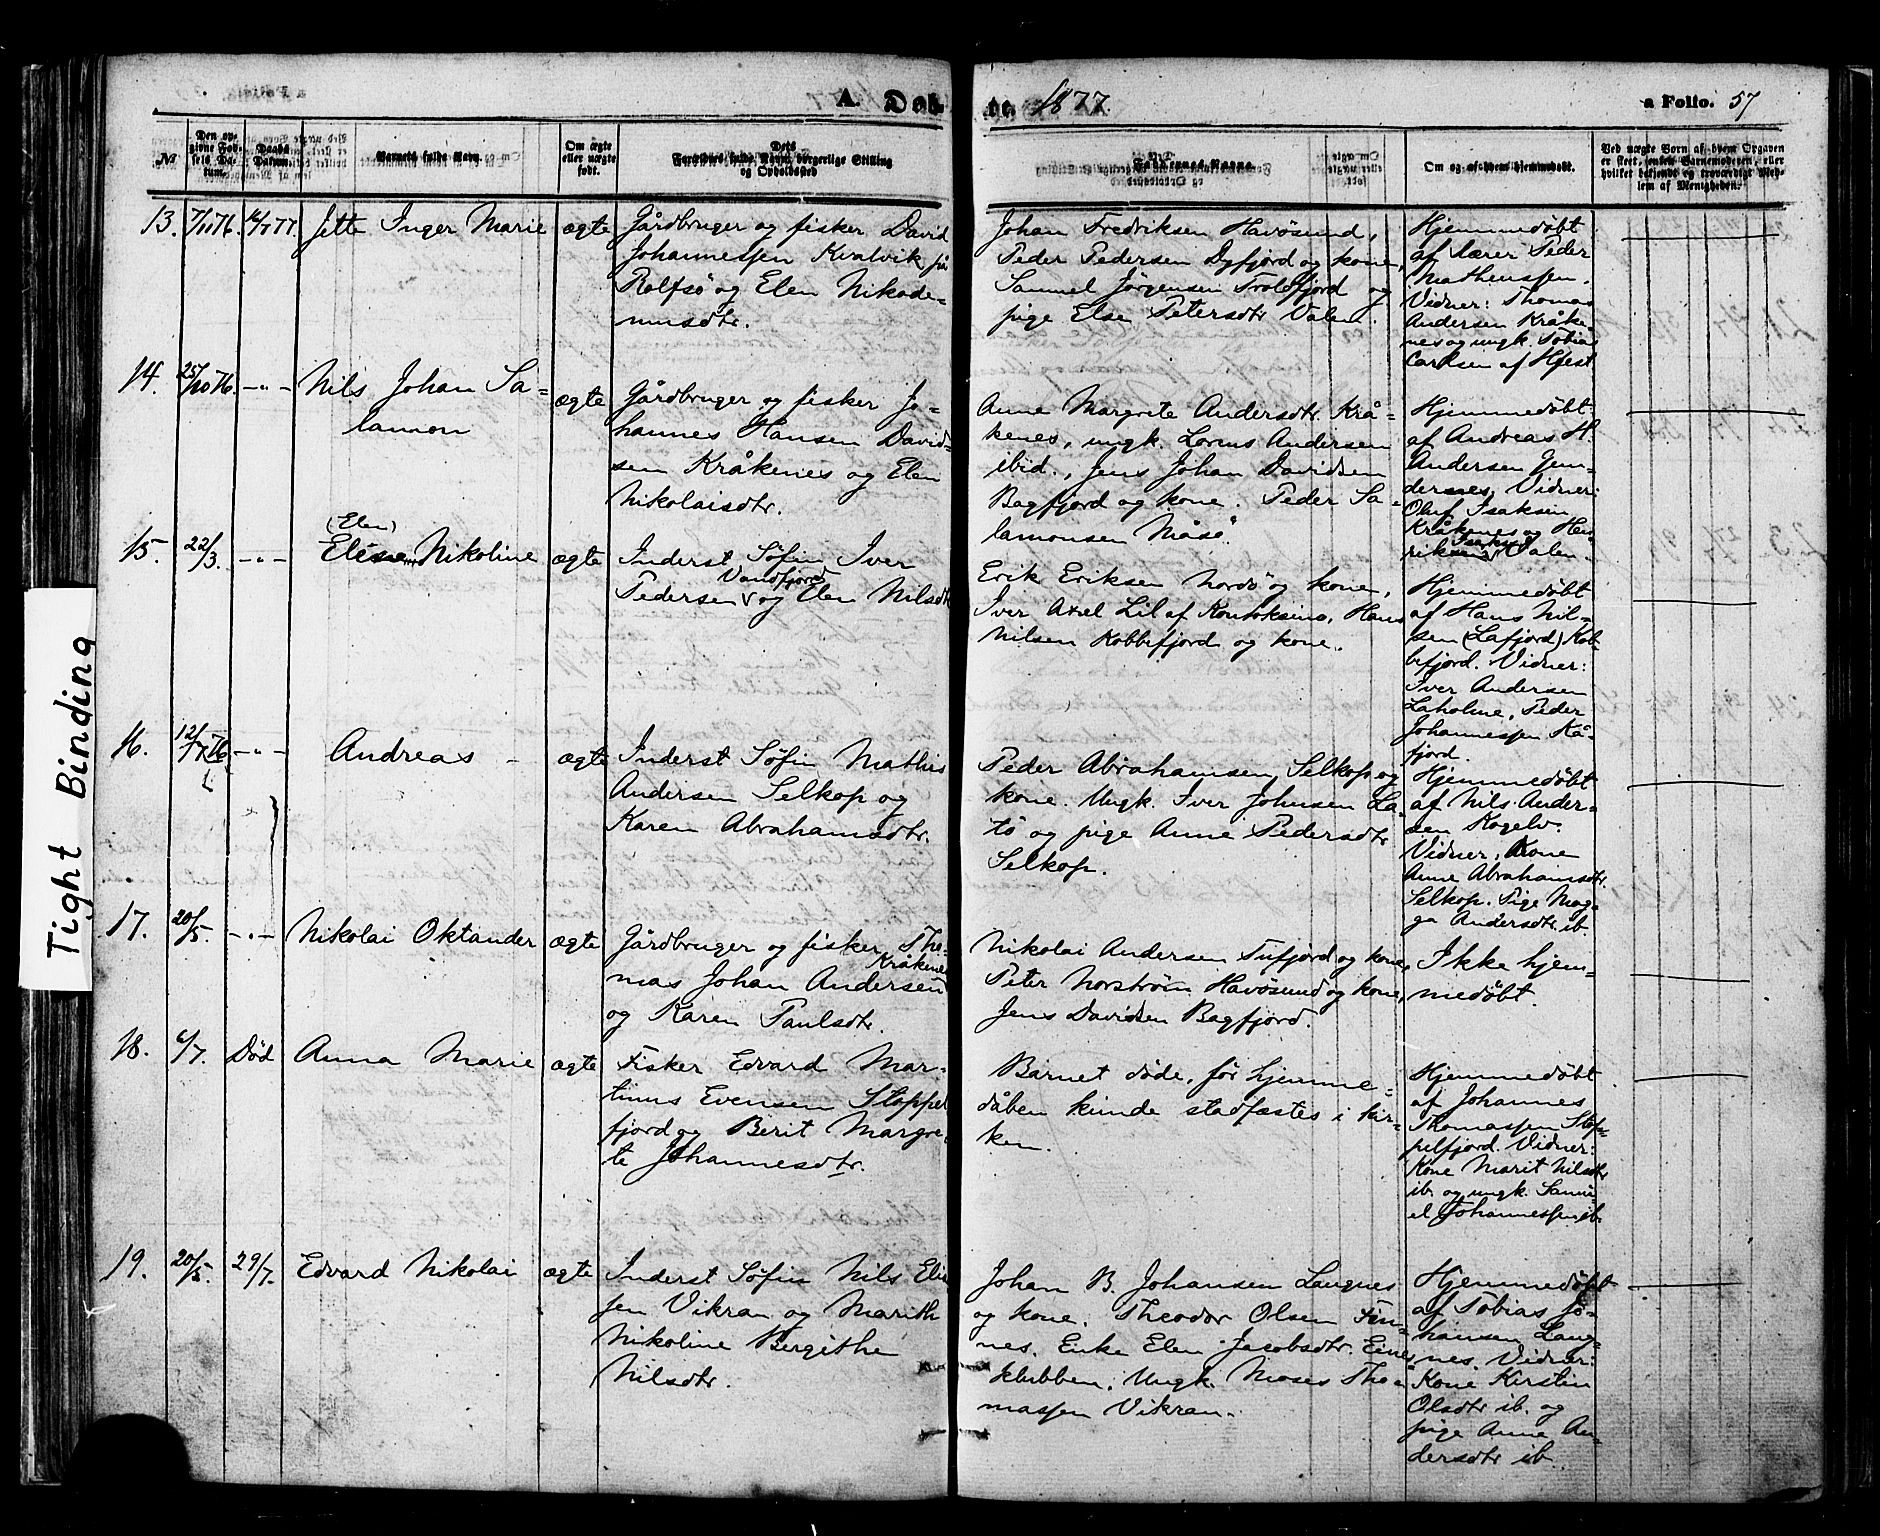 Tight Binding
A. Døb-
te. 1877.
a Folio. 57
№
Den op-
givne Fød-
sels Da-
tum.
Daabs
Datum.
Barnets fulde Navn.
Om ægte
eller uægte
født.
Dets
Forældres fulde Navn, borgerlige Stilling
og Opholdssted
Faddernes Navne.
Om og af hvem hjemmedøbt.
Ved uægte Børn af hvem Opgaven
er skeet, enten Barnemoderen, eller
hvilket bekjendt og troværdigt Med-
lem af Menigheden.
13. 7/11 76. 16/7 77. Jette Inger Marie ægte
Gårdbruger og fisker David
Johannessen Kvalvik på
Rolfsö og Elen Nikode-
musdtr.
Johan Fredriksen Havösund,
Peder Pedersen Dyfjord og kone,
Samuel Jörgensen Troldfjord og
pige Else Petersdtr Valen.
Hjemmedøbt
af Lærer Peder
Mathenssen.
Vidner: Thomas
Andersen Kråke-
nes og ungk. Tobias
Carlsen af Hfest
14. 25/10 76. -"- Nils Johan Sa-
lamon
ægte
Gårdbruger og fisker Jo-
hannes Hansen David-
sen Kråkenes og Elen
Nikolaisdtr.
Anne Margrete Andersdtr. Krå-
kenes, ungk. Lorens Andersen
ibid., Jens Johan Davidsen
Bagfjord og kone. Peder Sa-
lamonsen Måsö.
Hjemmedøbt
af Andreas H.
Andersen
Vidner:
Oluf Isaksen
Kråkenes og Hen-
Isaksen
Valen.
15. 22/3. -"- (Elen)
Nikoline ægte
Inderst Søfin Iver
Pedersen og Elen Nilsdtr
Erik Eriksen Nordö og kone,
Iver Axel Lil af Koutokeino, Hans
Nilsen Kobbefjord og kone.
Hjemmedøbt
af Hans Nil-
sen (Lafjord) Kob-
befjord. Vidner:
Iver Andersen
Laholme, Peder
Johannessen Kå-
fjord.
16. 12/12 76 -"- Andreas - ægte
Inderst Søfin Mathis
Andersen Selkop og
Karen Abrahamsdtr.
Peder Abrahamsen Selkop og
kone. Ungk. Iver Johnsen La-
tö og pige Anne Pedersdtr
Selkop.
Hjemmedøbt
af Nils Ander-
sen Kogelv.
Vidner: Kone
Anne Abrahamsdtr.
Selkop. Pige Mag-
ga Andersdtr ib.
17. 20/5. -"- Nikolai Oktander ægte
Gårdbruger og fisker Tho-
Kråkenes
mas Johan Andersen
og Karen Paulsdtr.
Nikolai Andersen Tufjord og kone,
Peter Norström Havösund og kone,
Jens Davidsen Bagfjord.
Ikke hjem-
medøbt
18. 6/7. Död Anna Marie ægte
Fisker Edvard Mar-
tinus Evensen Stoppel
fjord og Berit Margre-
te Johannesdtr.
Barnet døde, før hjemme-
dåben kunde stadfæstes i kir-
ken.
Hjemmedøbt
af Johannes
Thomassen Stop-
pelfjord. Vidner:
Kone Marit Nilsdtr
ib. og ungk. Samu-
el Johannessen ib.
19. 20/5. 29/7. Edvard Nikolai ægte
Inderst Søfin Nils Elia-
sen Vikran og Marith
Nikoline Bergithe
Nilsdtr.
Johan B. Johansen Langnes
og kone. Theodor Olsen Fin-
nes. Enke Elen Jacobsdtr. Einer-
klubben, Ungk. Moses Tho-
massen Vikran.
Hjemmedøbt
af Tobias Jo-
hansen Lang-
nes. Vidner:
Kone Kirstin
Olsdtr ib. og
pige Anne An-
dersdtr ib.